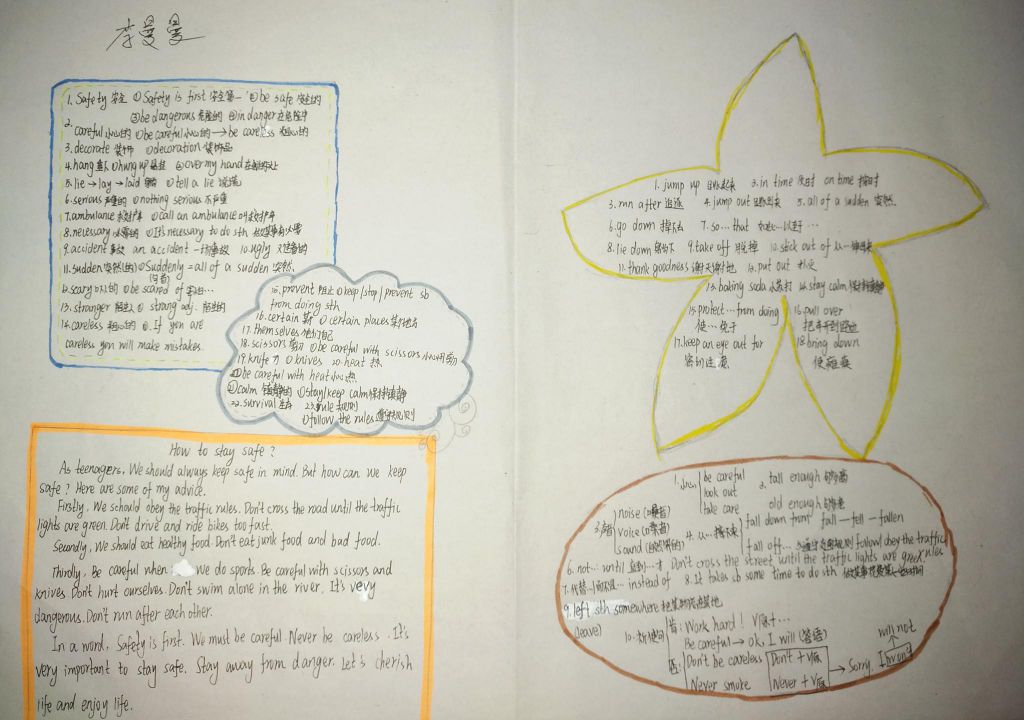 李曼曼
1. Safety 安全 ①Safety is first 安全第一 ②be safe 安全的
③be dangerous 危险的 ④in danger 在危险中
2. careful 小心的 ①be careful 小心的→be careless 粗心的
3. decorate 装饰 ①decoration 装饰品
4. hang 悬挂 ①hung up 悬挂 ②over my hand
5. lie→lay→laid ①tell a lie 说谎
6. serious 严重的 ①nothing serious 不严重
7. ambulance 救护车 ①call an ambulance 叫救护车
8. necessary 必要的 ①It's necessary to do sth 做某事有必要
9. accident 事故 an accident 一场事故 10. ugly
11. sudden 突然(的) ①Suddenly = all of a sudden 突然.
12. scary 可怕的 ①be scared of 害怕…
13. stranger 陌生人 ① strong adj. 陌生的
14. careless 粗心的 ①. If you are
careless you will make mistakes.
15. prevent 阻止 ①keep/stop/prevent sb
from doing sth
16. certain 某 ① certain places 某些地方
17. themselves 他们自己
18. scissors 剪刀 ①be careful with scissors 小心用剪刀
19. knife 刀 ①knives 20. heat 热
①be careful with heat 小心热
21. calm 镇静的 ①stay/keep calm 保持镇静
22. survival 生存 23. rule 规则
①follow the rules 遵守规则
How to stay safe?
As teenagers, We should always keep safe in mind. But how can we keep
safe? Here are some of my advice.
Firstly, We schould obey the traffic rules. Don't cross the road until the traffic
lights are green. Don't drive and ride bikes too fast.
Secondly, We should eat healthy food. Don't eat junk food and bad food.
Thirdly, Be careful when We do sports. Be careful with scissors and
knives. Don't hurt ourselves. Don't swim alone in the river. It's very
dangerous. Don't run after each other.
In a word, Safety is first. We must be careful. Never be careless. It's
very important to stay safe. Stay away from danger. Let's cherish
life and enjoy life.
1. jump up 跳起来 2. in time 及时 on time 按时
3. run after 追逐 4. jump out 跳出来 5. all of a sudden 突然.
6. go down 掉下去 7. so… that 如此…以至于…
8. lie down 躺下 9. take off 脱掉 10. stick out of 从…伸出来
11. thank goodness 谢天谢地 12. put out 扑灭
13. baking soda 小苏打 14. stay calm 保持镇静
15. protect… from doing
使…免于
16. pull over
把车开到路边
17. keep an eye out for
密切注意
18. bring down
使蔬菜
1. 小心 be careful
look out
take care
2. tall enough 够高
old enough 够老
3. 声音 noise (噪音)
voice (嗓音)
sound (自然界的)
4. 从…掉下来 fall down from fall—fell—fallen
fall off…
5. 遵守交通规则 follow/obey the traffic
rules
6. not… until 直到…才 Don't cross the street until the traffic lights are green.
7. 代替…而不是… instead of 8. It takes sb some time to do sth 做某事花费某人一些时间
9. left sth somewhere 把某物忘在某地
(leave)
10. 祈使句 肯: Work hard! V原+…
Be careful → ok, I will (答语)
否: Don't be careless Don't + V原
Never smoke Never + V原 → Sorry, I won't
will not